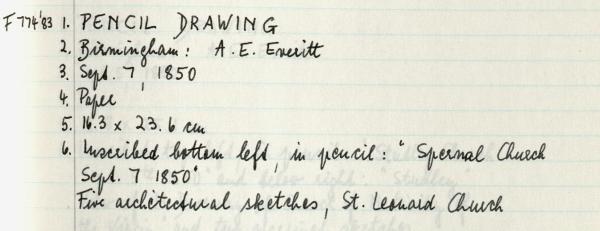 F 774'83 1. PENCIL DRAWING
2. Birmingham: A. E. Everitt
3. Sept. 7, 1850
4. Paper
5. 16.3 x 23.6 cm
6. Inscribed bottom left, in pencil: "Spernal Church
Sept. 7 1850"
Five architectural sketches, St. Leonard Church